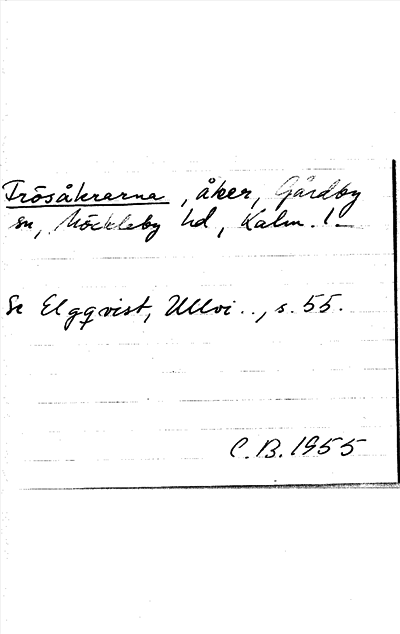 Frösåkrarna, åker, Gårdby
sn, Möckleby hd, Kalm. l.
Se Elgqvist, Ullvi.., s. 55.
C.B. 1955